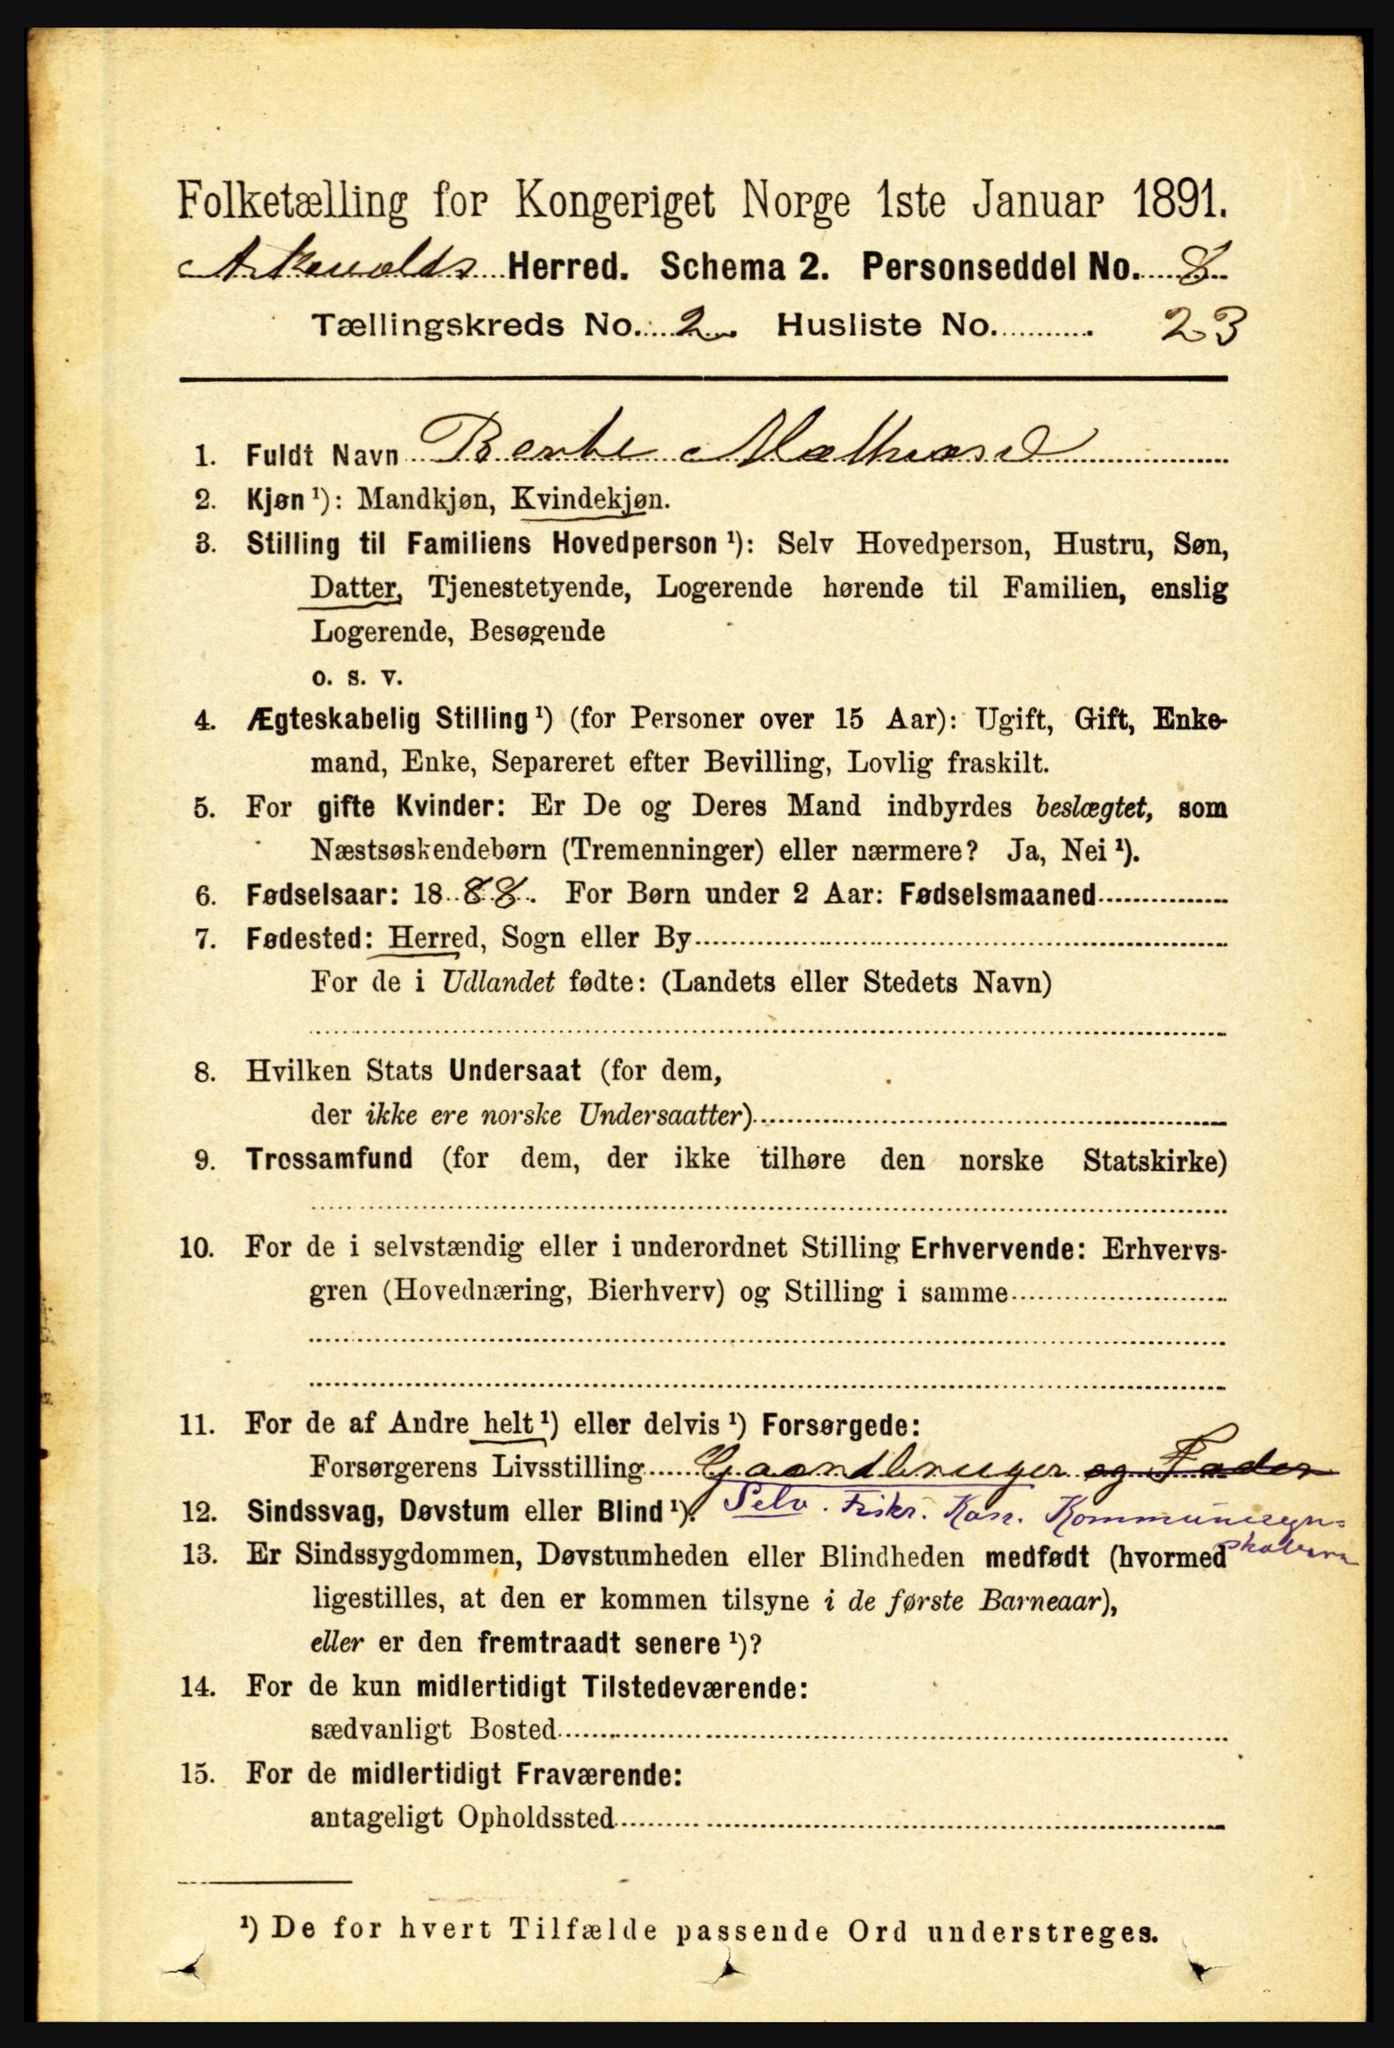 Folketælling for Kongeriget Norge 1ste Januar 1891.
Askevolds Herred. Schema 2. Personseddel No. 8
Tællingskreds No. 2. Husliste No. 23
1. Fuldt Navn Berte Mathiasd
2. Kjøn ¹): Mandkjøn, Kvindekjøn.
3. Stilling til Familiens Hovedperson ¹): Selv Hovedperson, Hustru, Søn,
Datter, Tjenestetyende, Logerende hørende til Familien, enslig
Logerende, Besøgende
o. s. v.
4. Ægteskabelig Stilling ¹) (for Personer over 15 Aar): Ugift, Gift, Enke-
mand, Enke, Separeret efter Bevilling, Lovlig fraskilt.
5. For gifte Kvinder: Er De og Deres Mand indbyrdes beslægtet, som
Næstsøskendebørn (Tremenninger) eller nærmere? Ja, Nei ¹).
6. Fødselsaar: 1888. For Børn under 2 Aar: Fødselsmaaned
7. Fødested: Herred, Sogn eller By
For de i Udlandet fødte: (Landets eller Stedets Navn)
8. Hvilken Stats Undersaat (for dem,
der ikke ere norske Undersaatter)
9. Trossamfund (for dem, der ikke tilhøre den norske Statskirke)
10. For de i selvstændig eller i underordnet Stilling Erhvervende: Erhvervs-
gren (Hovednæring, Bierhverv) og Stilling i samme
11. For de af Andre helt ¹) eller delvis ¹) Forsørgede:
Forsørgerens Livsstilling Gaardbruger og Fader
12. Sindssvag, Døvstum eller Blind ¹). Selv. Fiskr. Kommunesyn-
13. Er Sindssygdommen, Døvstumheden eller Blindheden medfødt (hvormed
ligestilles, at den er kommen tilsyne i de første Barneaar),
eller er den fremtraadt senere ¹)?
14. For de kun midlertidigt Tilstedeværende:
sædvanligt Bosted
15. For de midlertidigt Fraværende:
antageligt Opholdssted
¹) De for hvert Tilfælde passende Ord understreges.